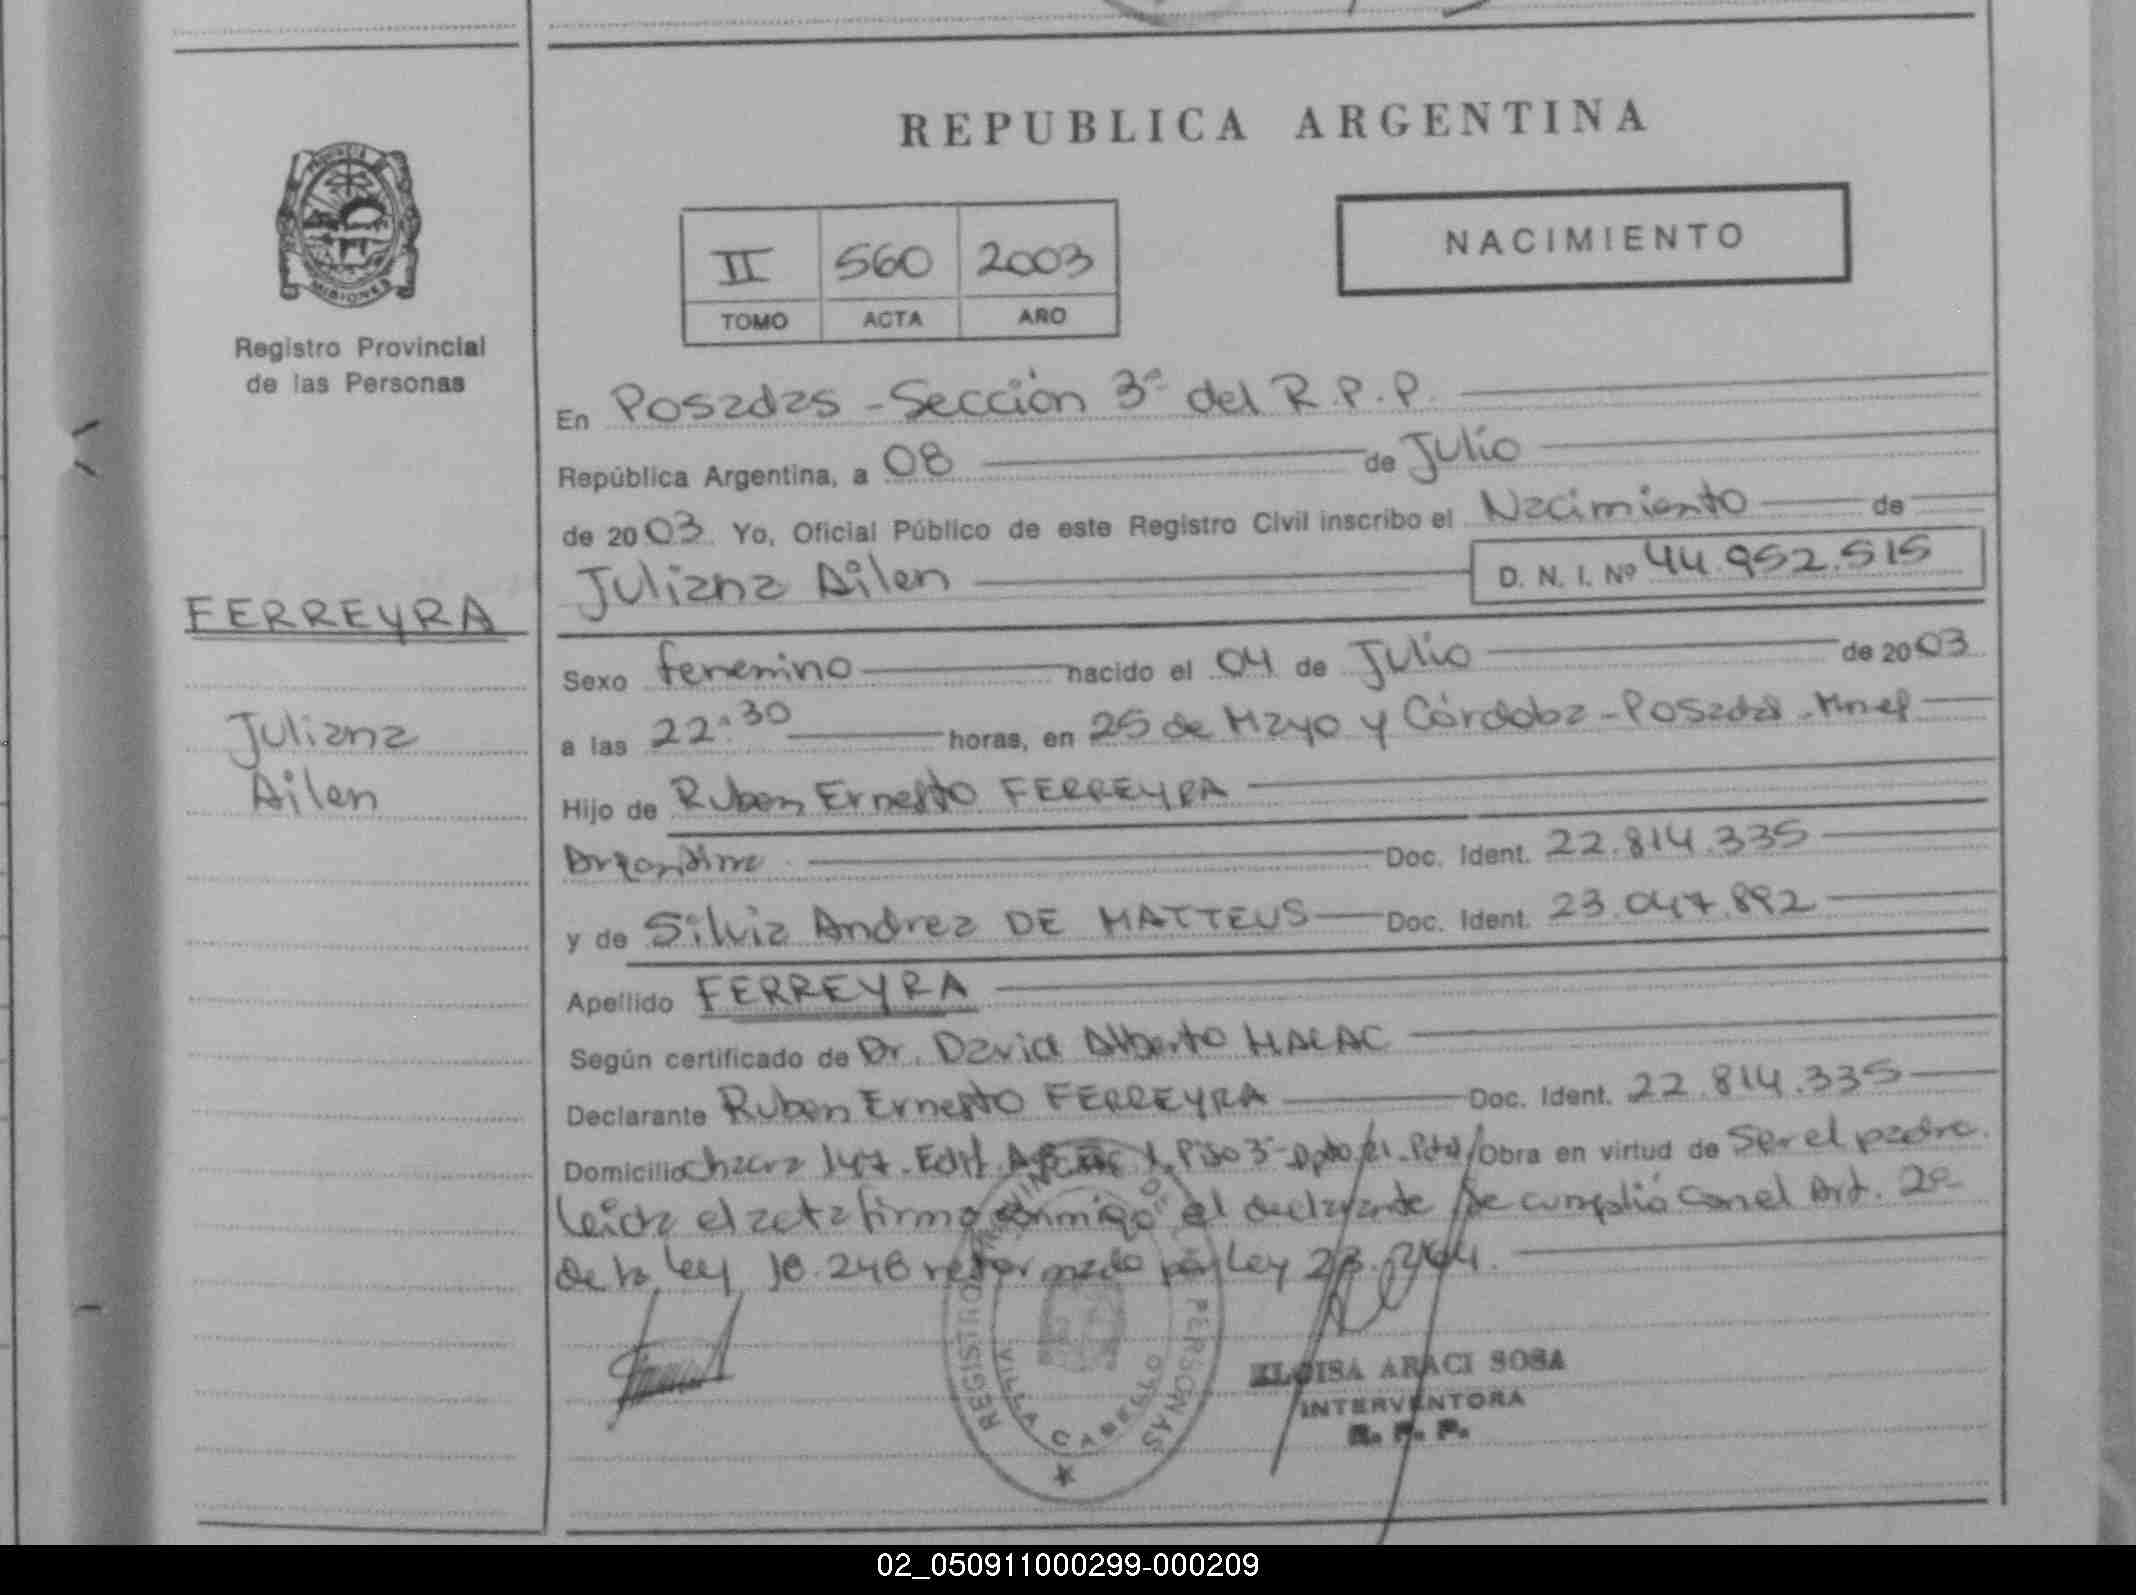 REPUBLICA ARGENTINA
PROVINCIA DE
MISIONES
Registro Provincial
de las Personas
II 560 2003
TOMO ACTA AÑO
NACIMIENTO
En Posadas - Sección 3ª del R.P.P.
República Argentina, a 08 de Julio
de 2003 Yo, Oficial Público de este Registro Civil inscribo el Nacimiento de
Juliana Ailen D. N. I. Nº 44.952.515
FERREYRA
Juliana
Ailen
Sexo femenino nacido el 04 de Julio de 2003
a las 22:30 horas, en 25 de Mayo y Córdoba - Posadas - Mnes
Hijo de Ruben Ernesto FERREYRA
Argentina Doc. Ident. 22.814.335
y de Silvia Andrea DE MATTEUS Doc. Ident. 23.047.892
Apellido FERREYRA
Según certificado de Dr. David Alberto HALAC
Declarante Ruben Ernesto FERREYRA Doc. Ident. 22.814.335
Domicilio chacra 147 - Edif. 1 Piso 3º Dpto 21 - Pdas Obra en virtud de Ser el padre.
Leida el acta firma conmigo el declarante Se cumplió con el Art. 2º
de la Ley 18.248 reformado por Ley 23.264.
REGISTRO PROVINCIAL DE LAS PERSONAS
VILLA CABELLO
ELOISA ARACI SOSA
INTERVENTORA
R. P. P.
02_050911000299-000209